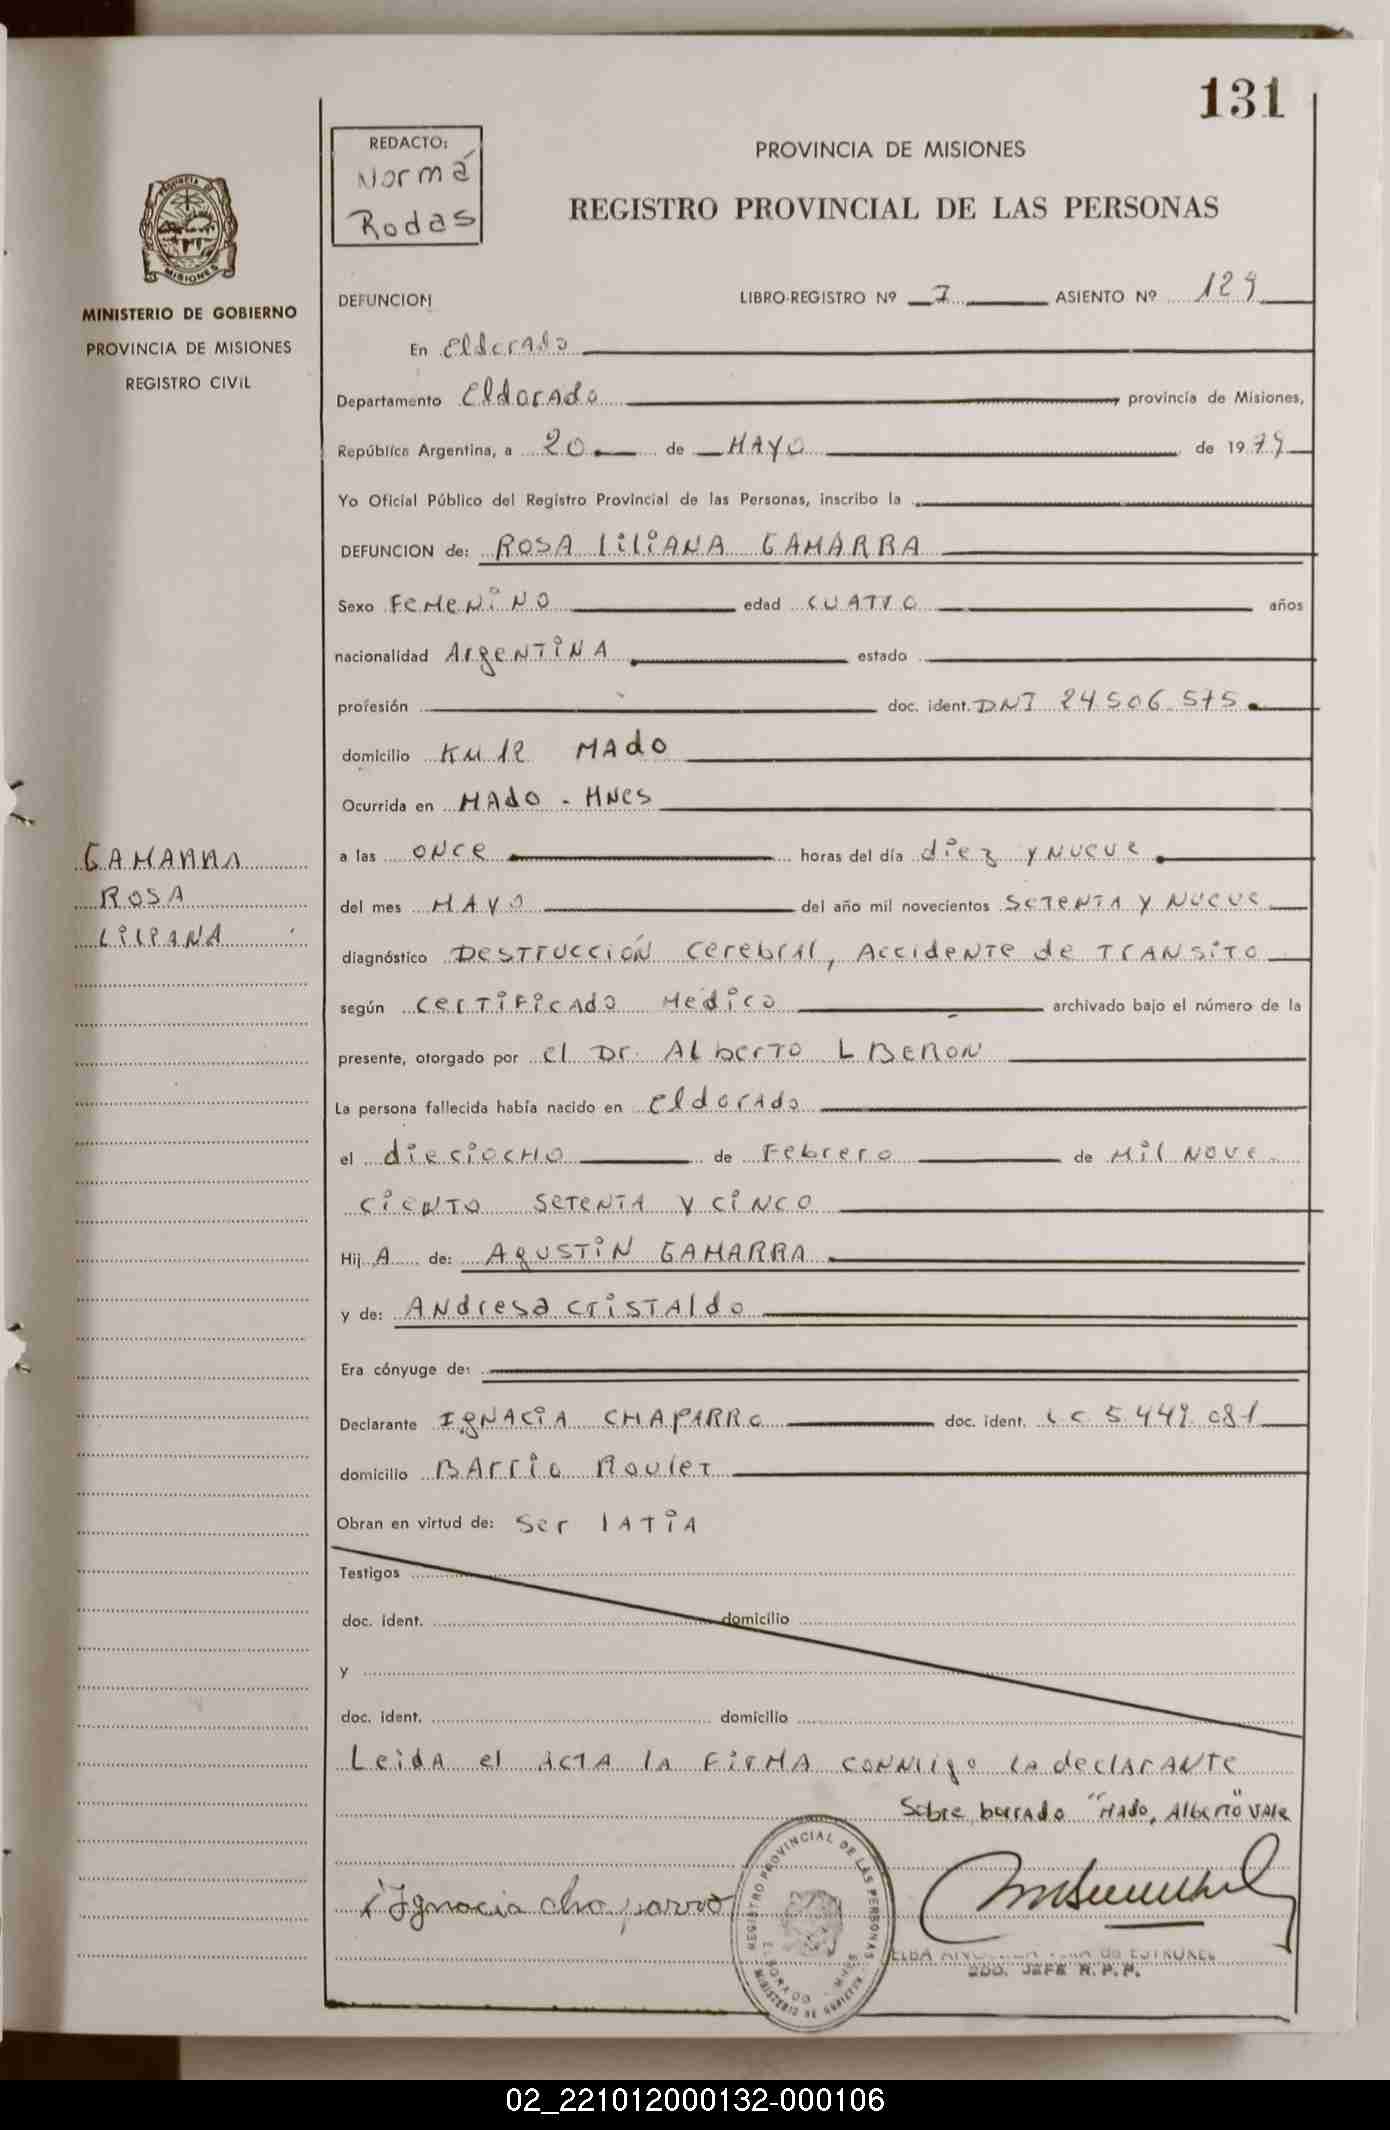 131
REDACTO:
Norma
Rodas
PROVINCIA DE MISIONES
REGISTRO PROVINCIAL DE LAS PERSONAS
MINISTERIO DE GOBIERNO
PROVINCIA DE MISIONES
REGISTRO CIVIL
DEFUNCION
LIBRO-REGISTRO Nº 7 ASIENTO Nº 129
En Eldorado
Departamento Eldorado provincia de Misiones,
República Argentina, a 20 de MAYO de 1979
Yo Oficial Público del Registro Provincial de las Personas, inscribo la
DEFUNCION de: ROSA LILIANA GAMARRA
Sexo FEMENINO edad CUATRO años
nacionalidad ArgeNTINA estado
profesión doc. ident. DNI 24 506 575
domicilio KM 12 MAdo
Ocurrida en MAdo - MNes
a las ONCE horas del día diez y NUEVE
del mes MAYO del año mil novecientos SETENTA Y NUEVE
GAMARRA
ROSA
LILIANA
diagnóstico DESTrucción cerebrAl, AccideNTe de TrANsiTo
según cerTiFicAdo Medico archivado bajo el número de la
presente, otorgado por el Dr. ALberTo L BERON
La persona fallecida había nacido en eldorAdo
el dieciocHo de Febrero de Mil Nove
cieNTo SeTeNTA y ciNco
Hij A de: AgUSTiN GAMARRA
y de: ANdresa crisTAldo
Era cónyuge de:
Declarante IgNACiA CHAPARRO doc. ident. LC 5 449 081
domicilio BArrio RouleT
Obran en virtud de: Ser lA TiA
Testigos
doc. ident. domicilio
y
doc. ident. domicilio
Leida el ACTA la FirMA conmigo la declarANTe
Sobre borrado "MAdo, AlberTo" vAle
Ignacia chaparro
REGISTRO PROVINCIAL DE LAS PERSONAS
ELDORADO - MNES
MINISTERIO DE GOBIERNO
ELBA
2DO. JEFE R. P. P.
02_221012000132-000106